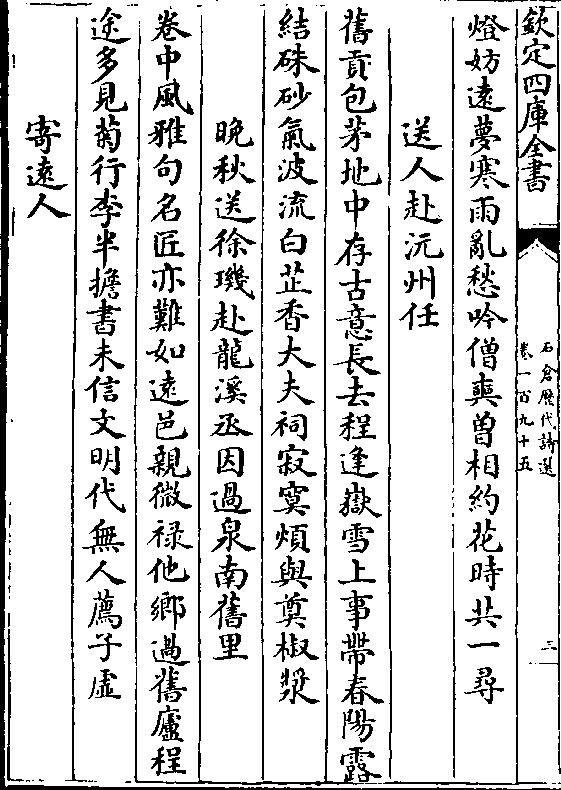 欽定四庫全書
石倉歷代詩選
卷一百九十五
三
燈妨遠夢寒雨亂愁吟僧爽曽相約花時共一尋
送人赴沅州任
舊貢包茅地中存古意長去程逢嶽雪上事帶春陽露
結硃砂氣波流白芷香大夫祠寂寞煩與奠椒漿
晚秋送徐璣赴龍溪丞因過泉南舊里
卷中風雅句名匠亦難如遠邑親微禄他鄉過舊廬程
途多見菊行李半擔書未信文明代無人薦子虛
寄遠人